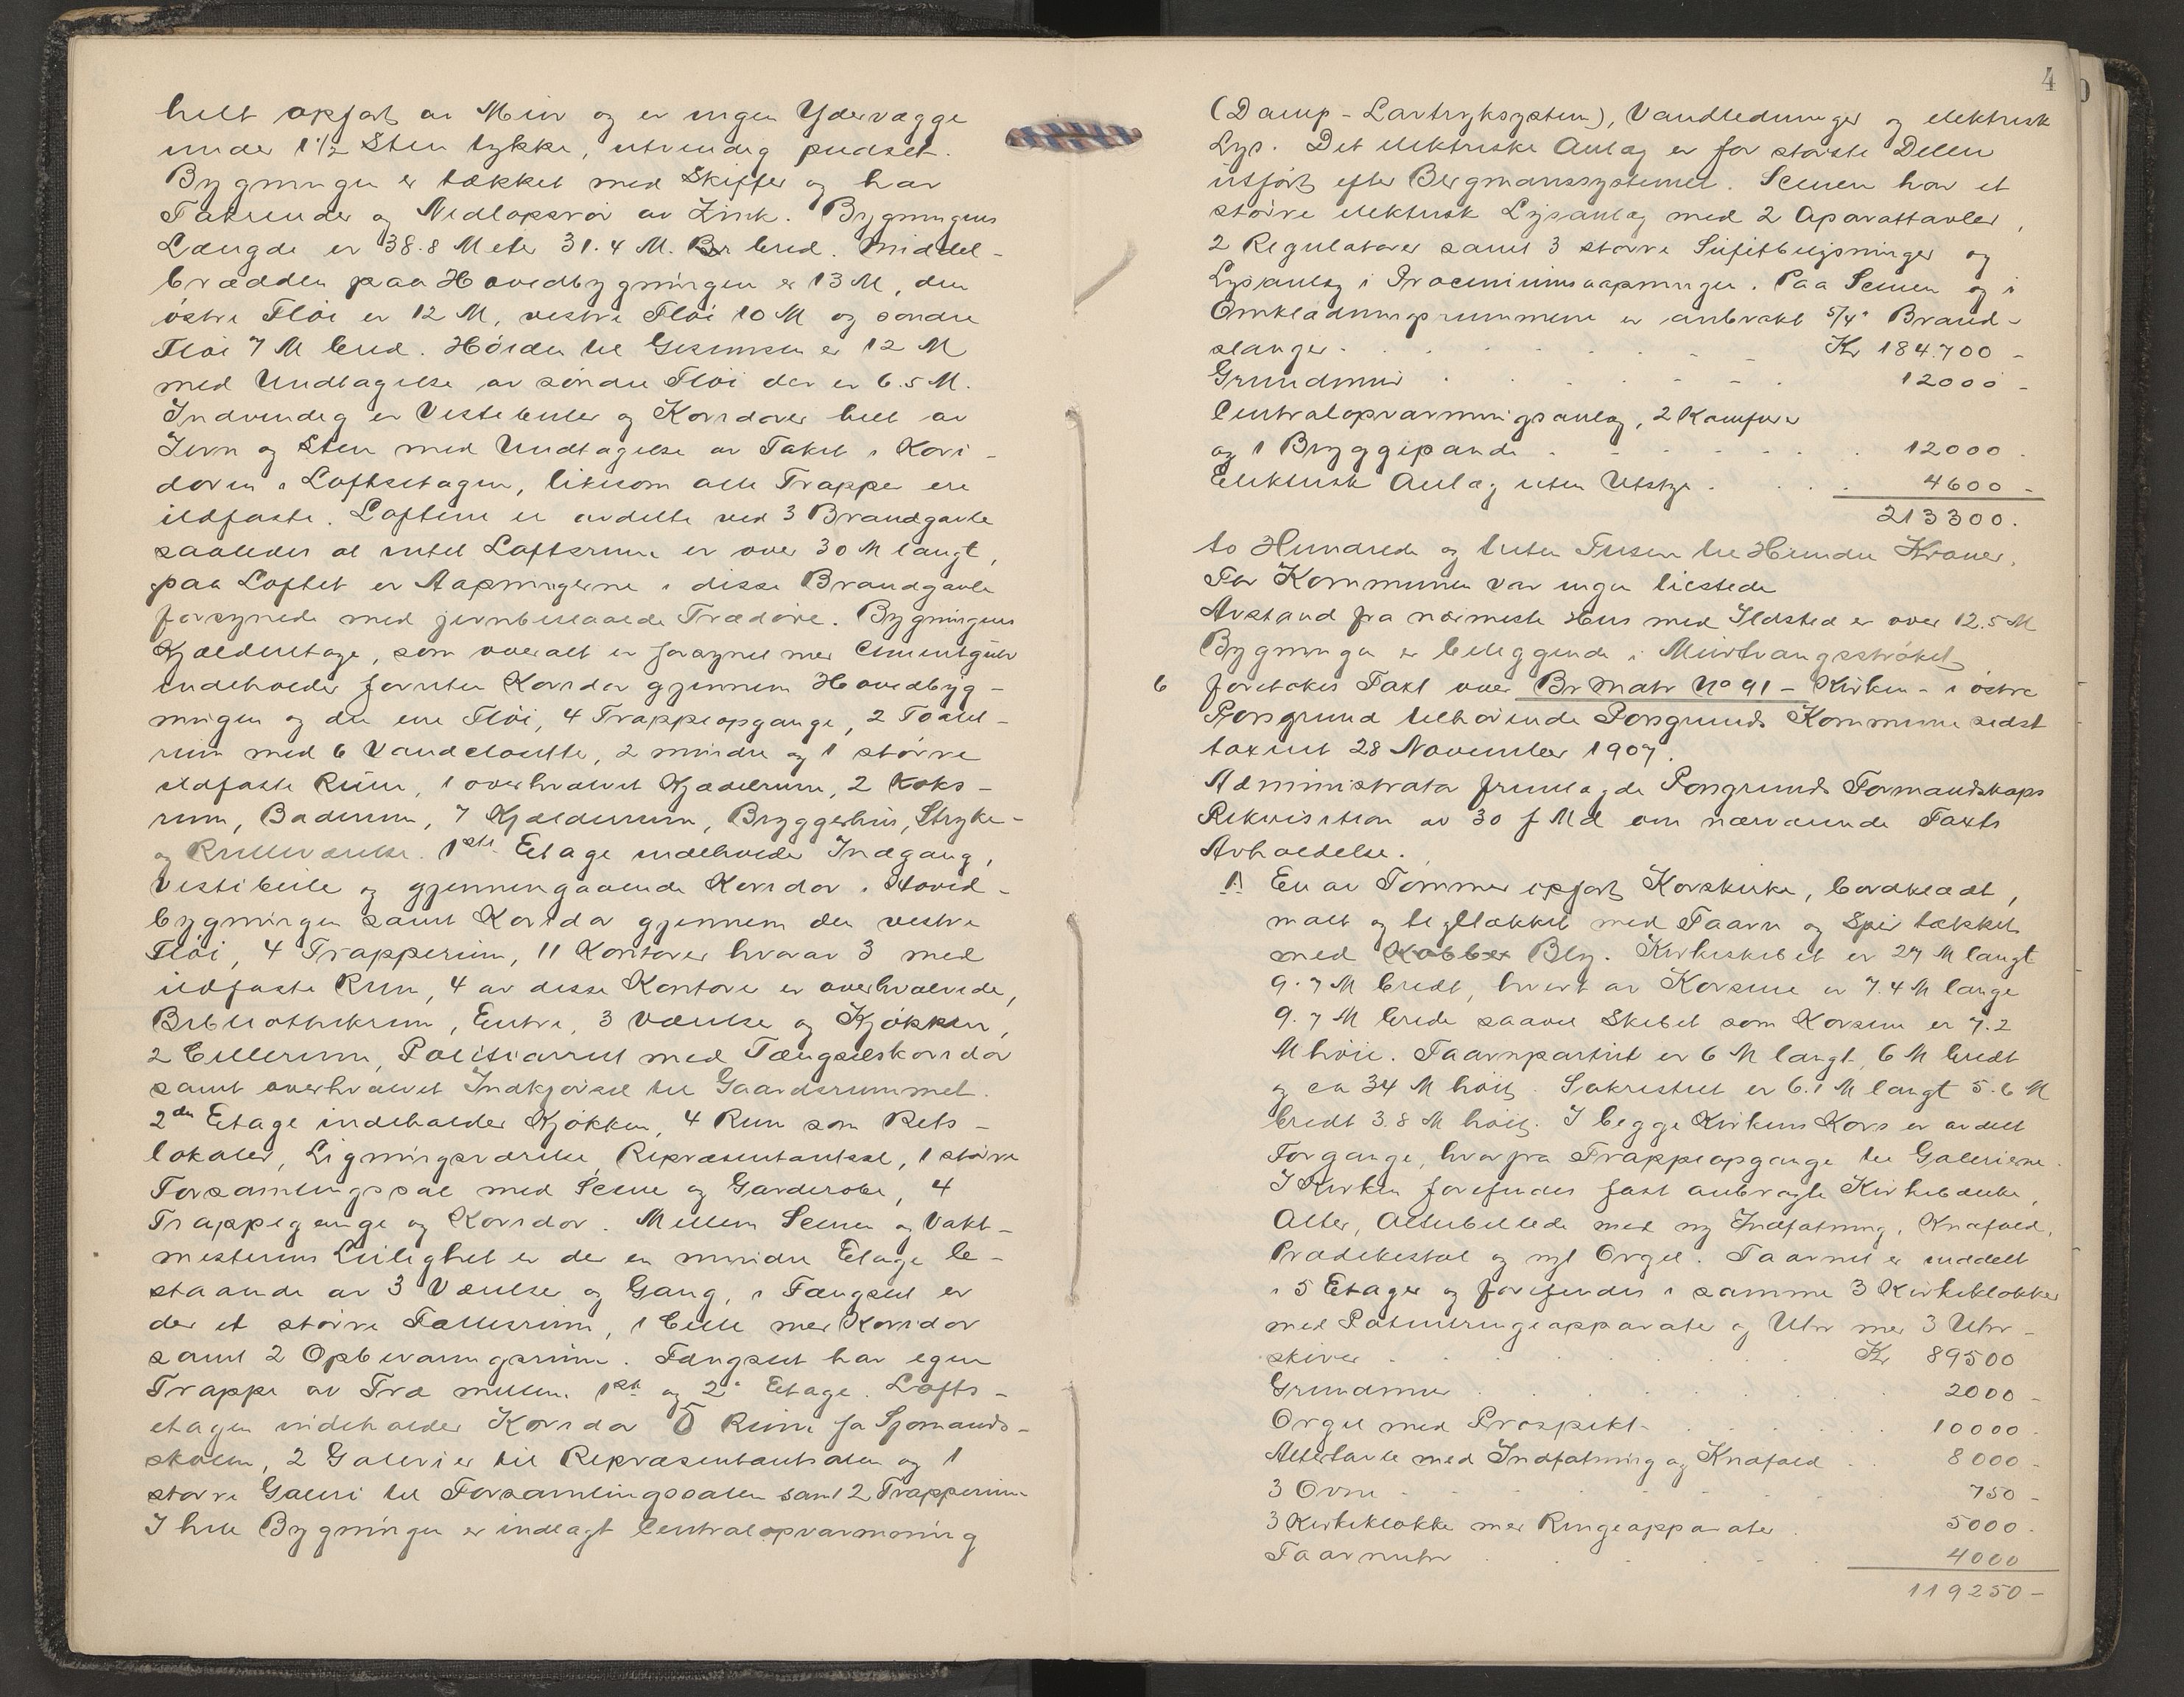 helt opført av Mur og er ingen Ydervægge
under 1 1/2 Sten tykke, utvendig pudset.
Bygningen er tækket med Skiffer og har
Takrender og Nedløpsrør av Zink. Bygningens
Længde er 38.8 Meter 31.4 M. Br bred. Middel-
bredden paa Hovedbygningen er 13 M, den
østre Fløi er 12 M, vestre Fløi 10 M og søndre
Fløi 7 M bred. Høiden til Gesimsen er 12 M
med Undtagelse av søndre Fløi der er 6.5 M.
Indvendig er Vestibuler og Korridorer helt av
Jern og Sten med Undtagelse av Taket i Kori-
doren i Loftsetagen, likesom alle Trapper ere
ildfaste. Lofterne er avdelte ved 3 Brandgavle
saaledes at intet Loftsrum er over 30 M langt,
paa Loftet er Aapningerne i disse Brandgavle
forsynede med jernbeslaaede Trædøre. Bygningens
Kjælderetage, som overalt er forsynet med Cementgulv
indeholder foruten Koridor gjennem Hovedbyg-
ningen og den ene Fløi, 4 Trappeopgange, 2 Toalet-
rum med 6 Vandclosetter, 2 mindre og 1 større
ildfaste Rum, 1 overhvælvet Kjælderrum, 2 Koks-
rum, Baderum, 7 Kjælderrum, Bryggerhus, Stryke-
og Rulleværelse. 1ste Etage indeholder Indgang,
Vestibule og gjennemgaaende Koridor i Hoved-
bygningen samt Koridor gjennem den vestre
Fløi, 4 Trapperum, 11 Kontorer hvorav 3 med
ildfaste Rum, 4 av disse Kontorer er overhvælvede,
Bibliothekrum, Entre, 3 Værelser og Kjøkken,
2 Cellerum, Politiarrest med Fængselskoridor
samt overhvælvet Indkjørsel til Gaardsrummet.
2den Etage indeholder Kjøkken, 4 Rum som Rets-
lokaler, Ligningsværelse, Repræsentantsal, 1 større
Forsamlingssal med Scene og Garderobe, 4
Trappegange og Koridor. Mellem Scenen og Vakt-
mesterens Leilighet er der en mindre Etage be-
staaende av 3 Værelser og Gang, i Fængslet er
der et større Fællesrum, 1 Celle med Koridor
samt 2 Opbevaringsrum. Fængslet har egen
Trappe av Træ mellem 1ste og 2. Etage. Lofts-
etagen indeholder Koridor 5 Rum for Sjømands-
skolen, 2 Gallerier til Repræsentantsalen og 1
større Galleri til Forsamlingssalen samt 2 Trapperum
I hele Bygningen er indlagt Centralopvarmning
4
(Damp-Lavtryksystem), Vandledninger og elektrisk
Lys. Det elektriske Anlæg er for største Delen
utført efter Bergmanssystemet. Scenen har et
større elektrisk Lysanlæg med 2 Aparattavler,
2 Regulatorer samt 3 større Sufitbelysninger og
Lysanlæg i Prosceniumsaapningen. Paa Scenen og i
Omklædningsrummene er anbrakt 5/4" Brand-
slanger . . . Kr 184.700 -
Grundmur . . . 12000 -
Centralopvarmningsanlæg, 2 Komfurer
og 1 Bryggepande . . . 12000.
Elektrisk Anlæg uten Utstyr . . . 4600 -
213300.
to Hundrede og tretten Tusen tre Hundre Kroner.
For Kommunen var ingen tilstede
Avstand fra nærmeste Hus med Ildsted er over 12.5 M
Bygningen er beliggende i Murtvangsstrøket
6 foretokes Taxt over Br Matr No 91 - Kirken - i østre
Porsgrund tilhørende Porsgrunds Kommune sidst
taxeret 28 November 1907.
Administrator fremlagde Porsgrunds Formandskaps
Rekvisition av 30 f Md om nærværende Taxts
Avholdelse.
1) En av Tømmer opført Korskirke, bordklædt,
malt og teglttækket med Taarn og Spir tækket
med Kobber Bly. Kirkeskibet er 27 M langt
9.7 M bredt, hvert av Korsene er 7.4 M lange
9.7 M brede saavel Skibet som Korsene er 7.2
M høie. Taarnpartiet er 6 M langt 6 M bredt
og ca 34 M høit. Sakristiet er 6.1 M langt 5.6 M
bredt 3.8 M høit. I begge Kirkens Kors er avdelt
Forgange, hvorfra Trappeopgange til Gallerierne.
I Kirken forefindes fast anbragte Kirkebænke,
Alter, Alterbillede med ny Indfatning, Knæfald,
Prædikestol og nyt Orgel. Taarnet er inddelt
i 5 Etager og forefindes i samme 3 Kirkeklokker
med Patentringeapparater og Uhr med 3 Uhr-
skiver . . . Kr 89500
Grundmur . . . 2000 -
Orgel med Prospekt . . . 10000.
Altertavle med Indfatning og Knæfald . . 8000 -
3 Ovne . . . 750 -
3 Kirkeklokker med Ringeapparater . 5000.
Taarnuhr . . . 4000
119250 -